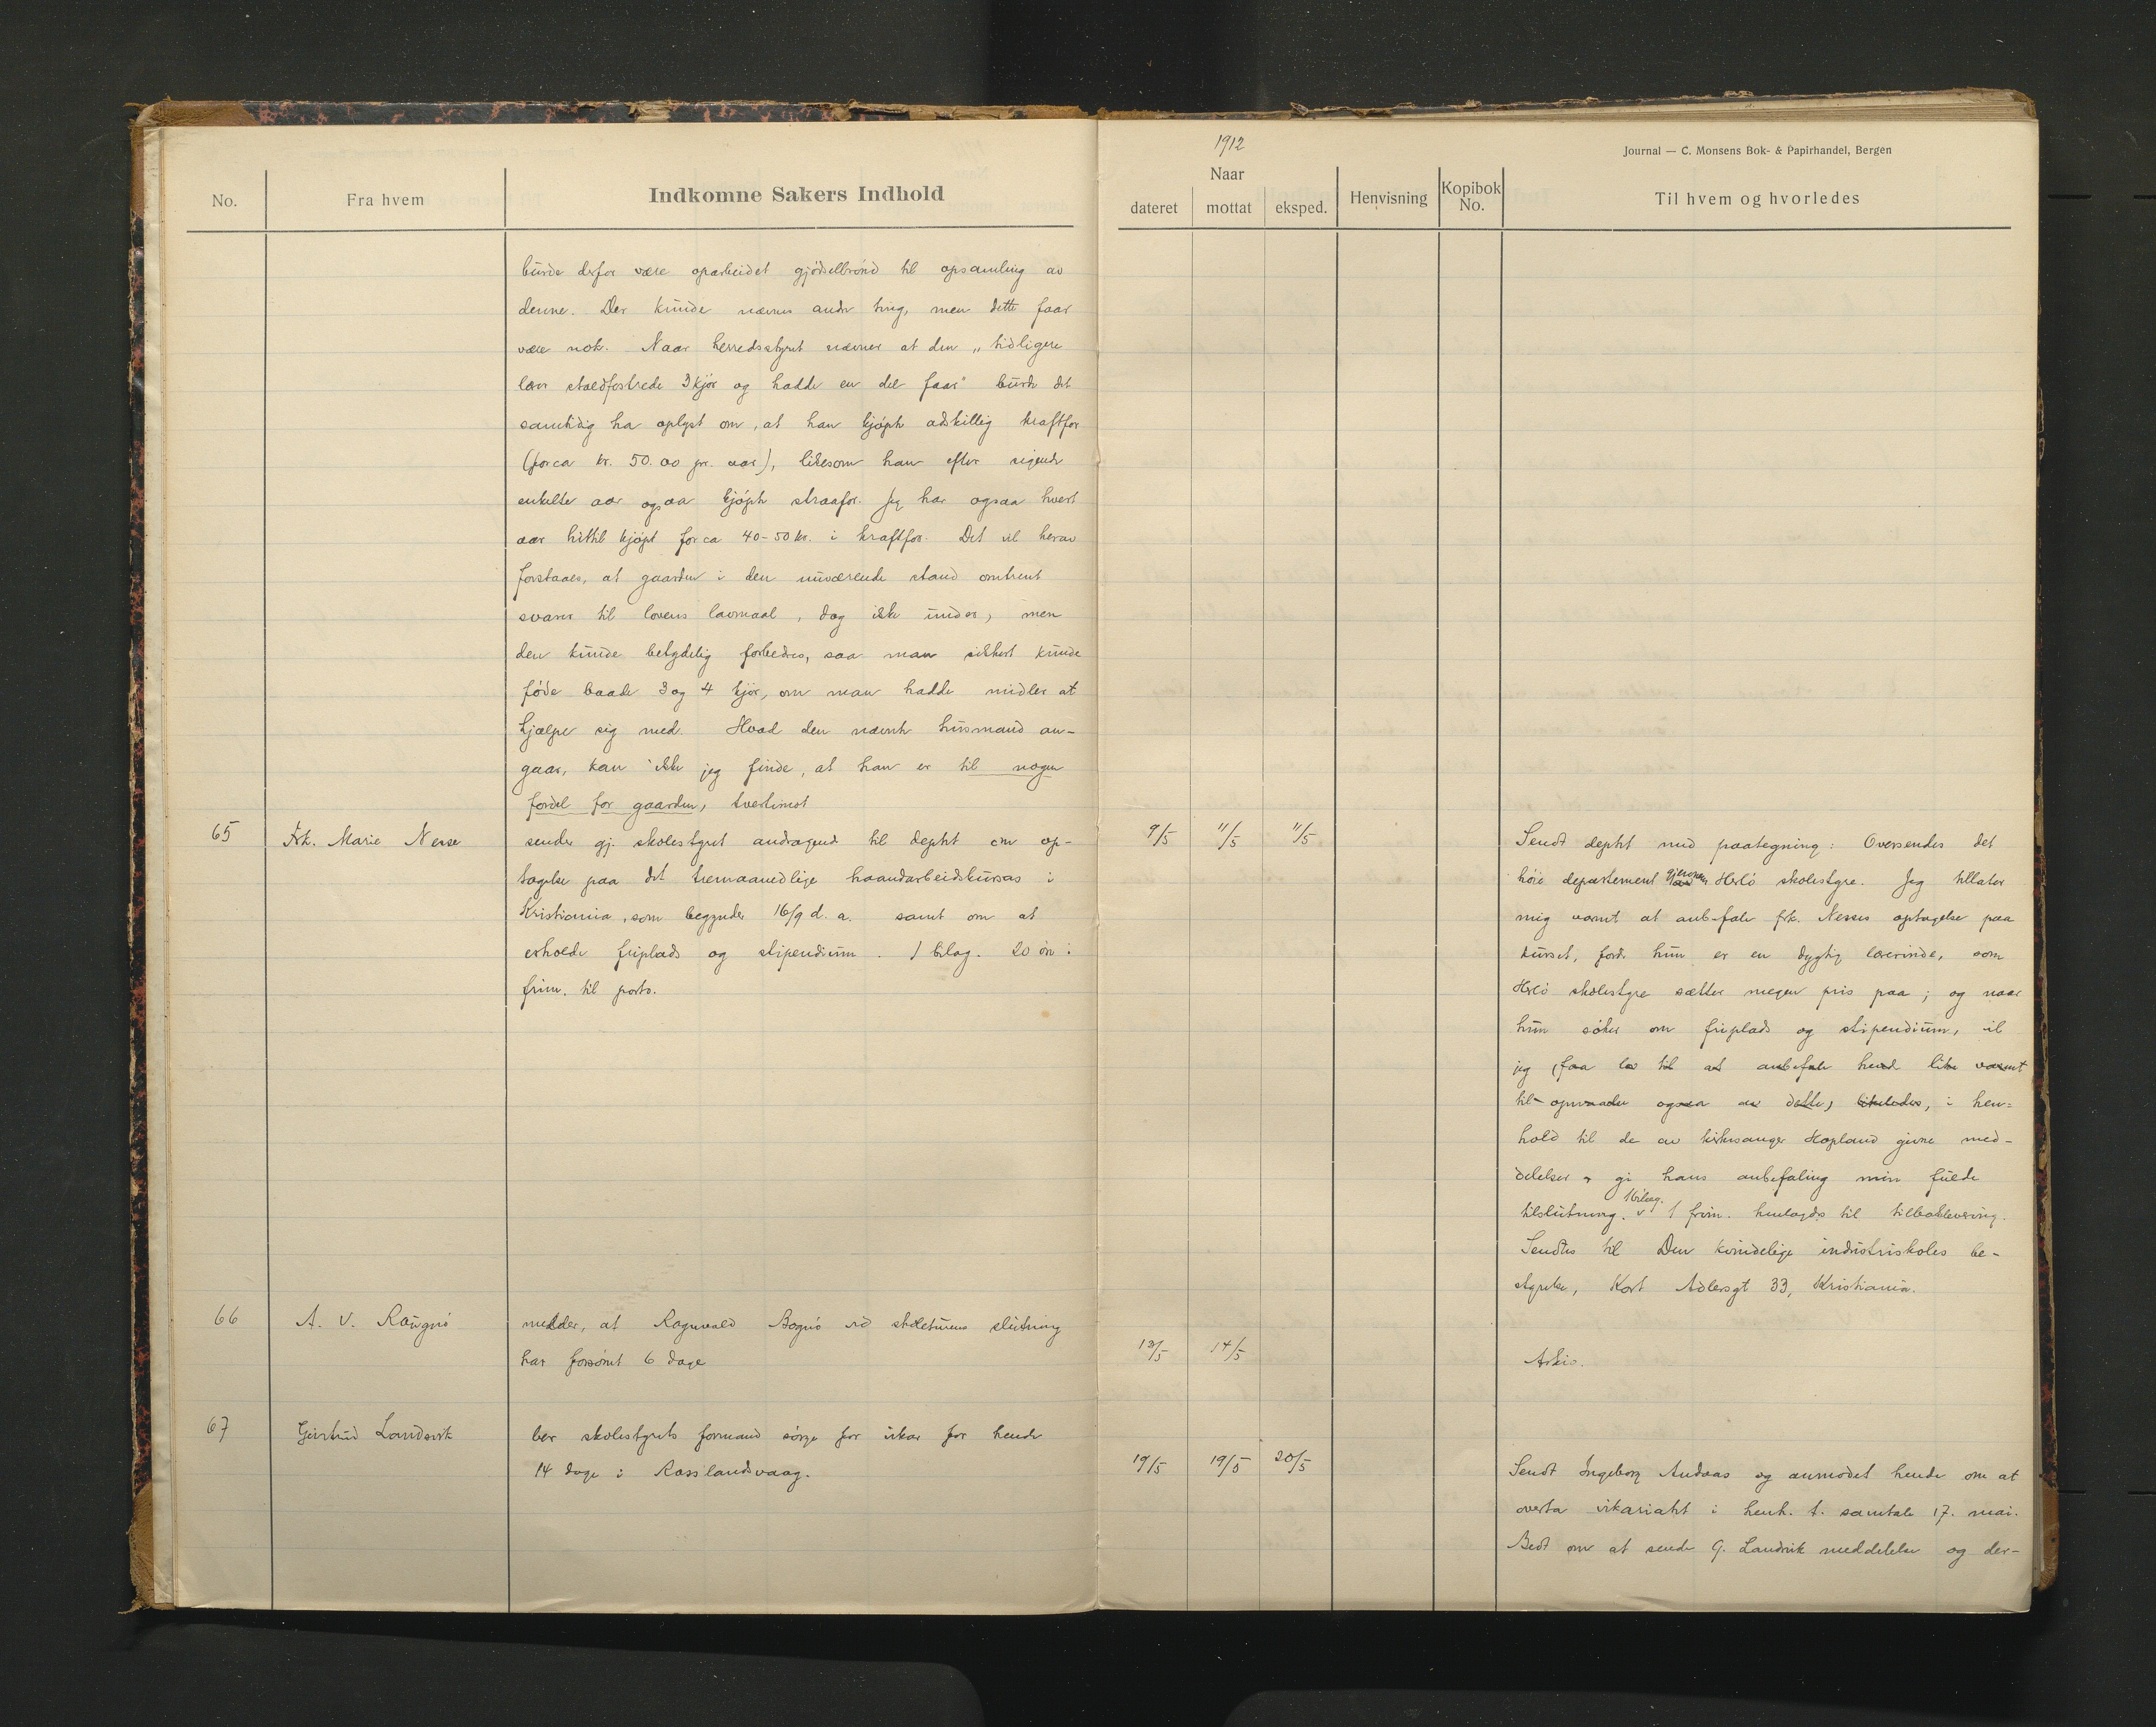 No.
Fra hvem
Indkomne Sakers Indhold
burde derfor være oparbeidet gjødselbrønd til opsamling av
denne. Der kunde nævnes andre ting, men dette faar
være nok. Naar herredsstyret nævner at den „tidligere
lærer staldfostrede 3 kjør og hadde en del faar" burde det
samtidig ha oplyst om, at han kjøpte adskillig kraftfor
(for ca kr. 50.00 pr. aar), likesom han efter sigende
enkelte aar ogsaa kjøpte straafor. Jeg har ogsaa hvert
aar hittil kjøpt for ca 40-50 kr. i kraftfor. Det vil herav
forstaaes, at gaarden i den nuværende stand omtrent
svarer til lovens lavmaal, dog ikke under, men
den kunde betydelig forbedres, saa man sikkert kunde
føde baade 3 og 4 kjør, om man hadde midler at
hjælpe sig med. Hvad den nævnte husmand an-
gaar, kan ikke jeg finde, at han er til nogen
fordel for gaarden, tvertimot
65
Frk. Marie Nesse
sender gj. skolestyret andragende til deptet om op-
tagelse paa det tremaanedlige haandarbeidskursus i
Kristiania, som begynder 16/9 d. a. samt om at
erholde friplads og stipendium. 1 bilag. 20 øre i
frim. til porto.
66
A. V. Raugnø
melder, at Ragnvald Bognø ved skoleturens slutning
har forsømt 6 dage
67
Gjertrud Landsvik
ber skolestyrets formand sørge for vikar for hende
14 dage i Rosslandsvaag.
1912
Journal — C. Monsens Bok- & Papirhandel, Bergen
Naar
dateret
mottat
eksped.
Henvisning
Kopibok No.
Til hvem og hvorledes
9/5 11/5 11/5
Sendt deptet med paategning: Oversendes det
høie departement gjennem Herlø skolestyre. Jeg tillater
mig varmt at anbefale frk. Nesses optagelse paa
kurset, fordi hun er en dygtig lærerinde, som
Herlø skolestyre sætter megen pris paa; og naar
hun søker om friplads og stipendium, vil
jeg faa lov til at anbefale hende like varmt
til opnaaelse ogsaa av dette, likeledes, i hen-
hold til de av kirkesanger Hopland givne med-
delelser gi hans anbefaling min fulde
tilslutning. 1 bilag. 1 frim. henlagdes til tilbakelevering.
Sendtes til Den kvindelige industriskoles be-
styrelse, Kort Adlersgt 33, Kristiania.
13/5 14/5
Arkiv.
19/5 19/5 20/5
Sendt Ingeborg Andaas og anmodet hende om at
overta vikariatet i henh. t. samtale 17. mai.
Bedt om at sende G. Landsvik meddelelse og der-